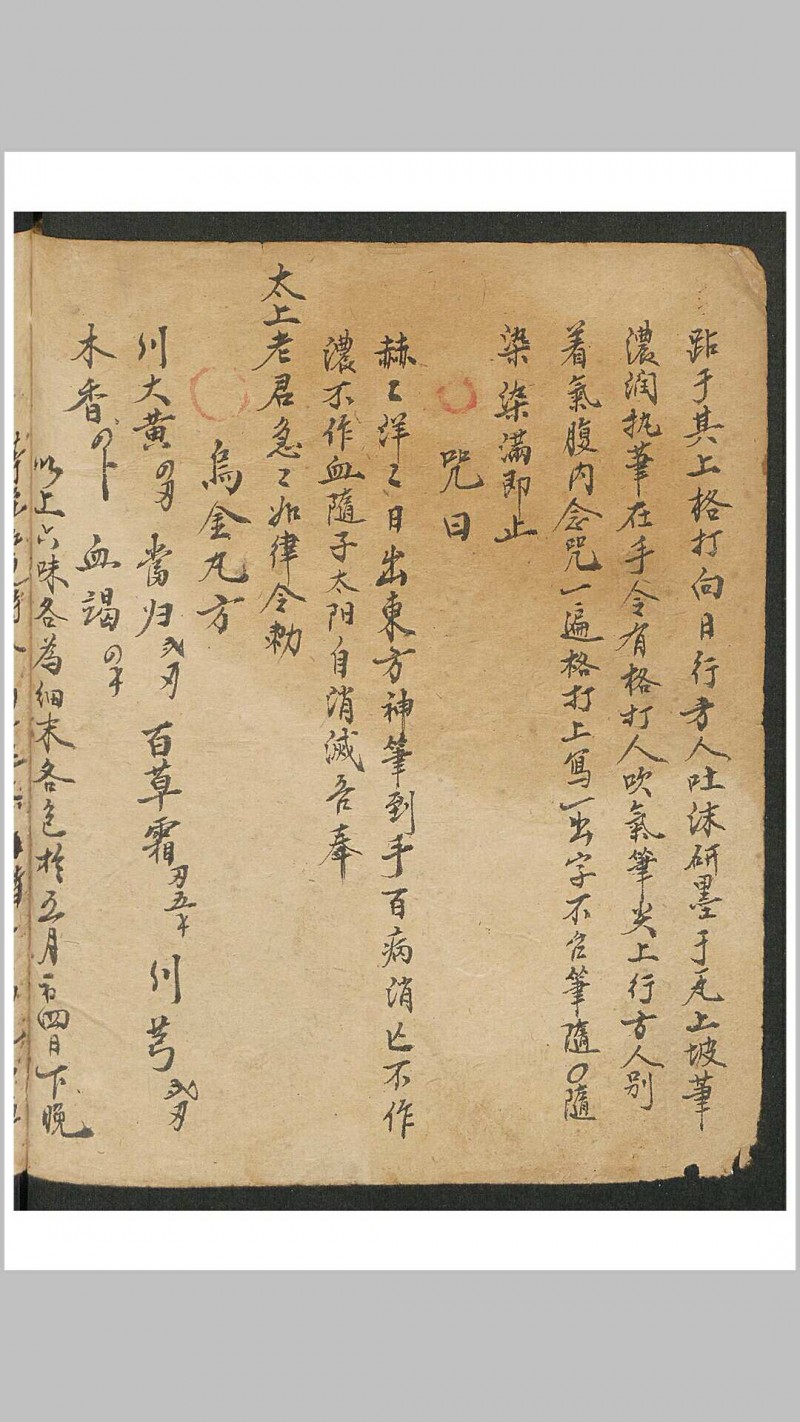 跕于其上格打向日行方人吐沫研墨于瓦上坡筆
濃润执筆在手令有格打人吹氣筆尖上行方人别
着氣腹内念咒一遍格打上寫一字不名筆隨〇隨
染染滿即止
咒曰
赫〻洋〻日出東方神筆到手百病消亡不作
濃不作血隨子太阳自消滅吾奉
太上老君急〻如律令勅
烏金丸方
川大黄 當归 百草霜 川芎
木香 血竭
以上六味各為细末各包於五月初四日下晚